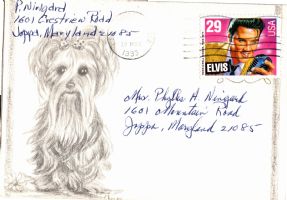 P. Wingard
1601 Crestview Road
Joppa, Maryland 21085
1993
29
USA
ELVIS
Mrs. Phyllis A. Wingard
1601 Mountain Road
Joppa, Maryland 21085